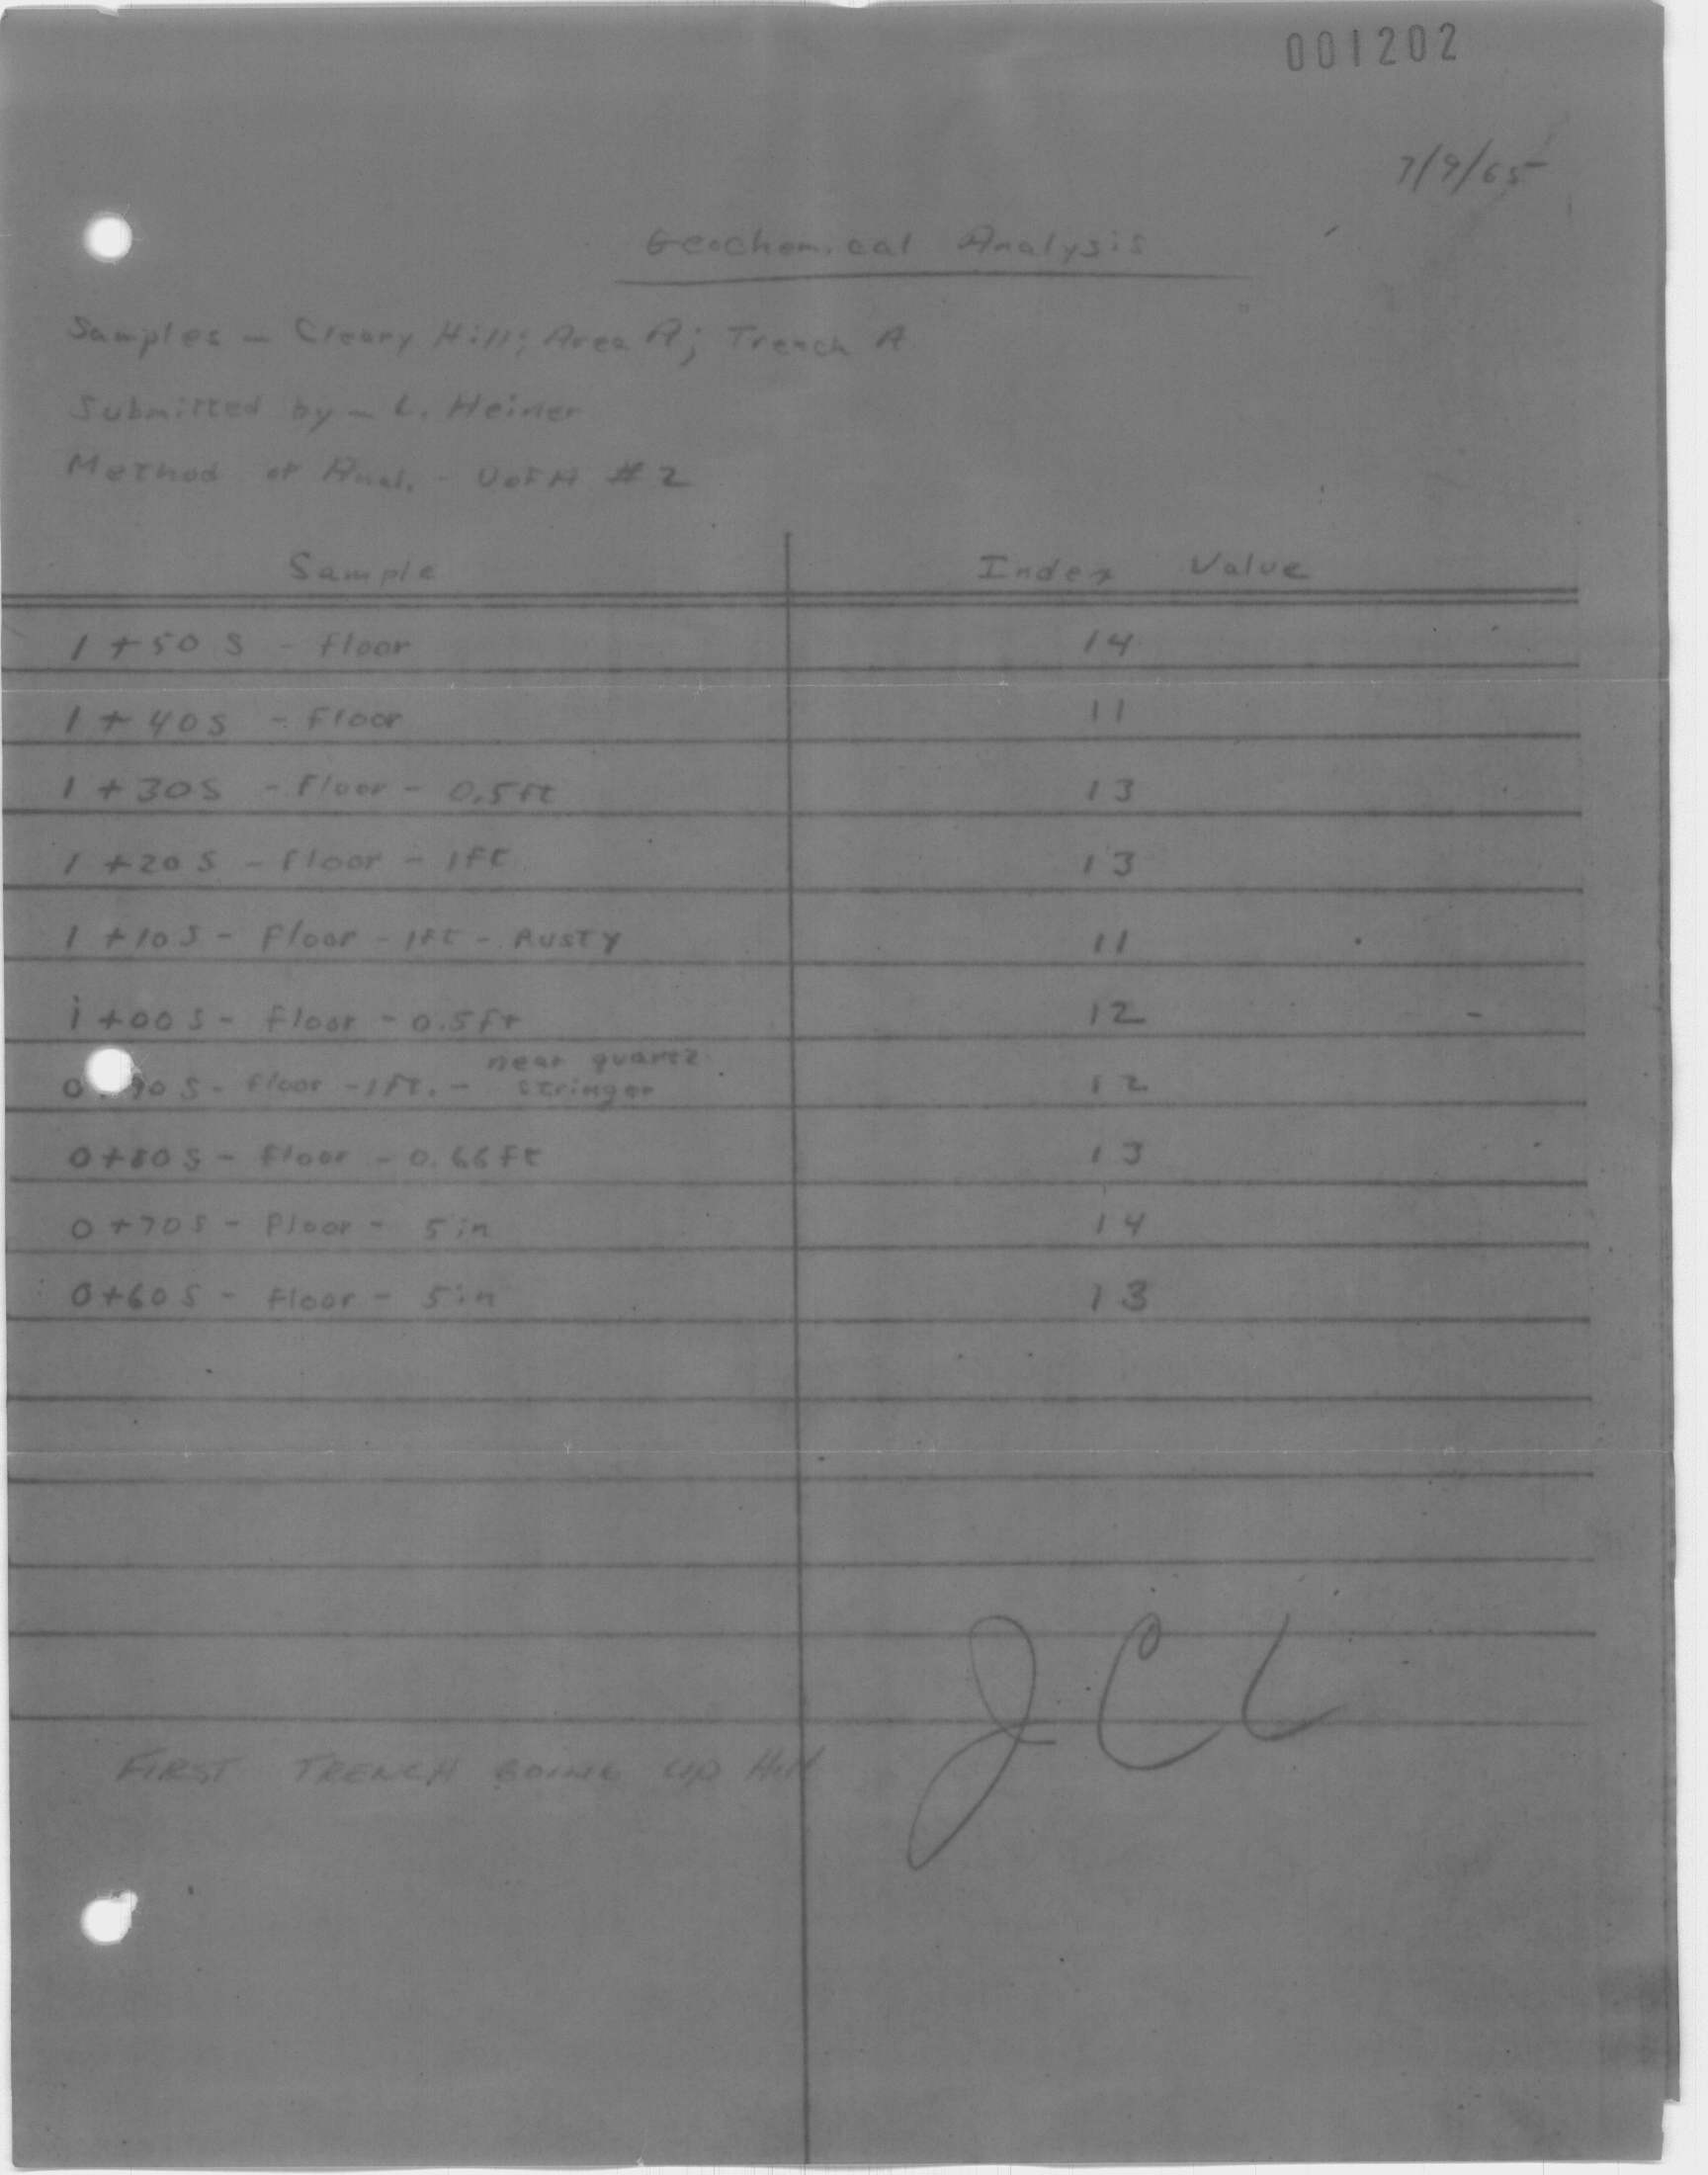 001202
7/9/65
Geochemical Analysis
Samples - Cleary Hill; Area A; Trench A
Submitted by - L. Heiner
Method of Anal. - U of A #2
Sample Index Value
1+50 S - floor 14
1+40 S - Floor 11
1+30 S - Floor - 0.5ft 13
1+20 S - floor - 1ft 13
1+10 S - Floor - 1ft - Rusty 11
1+00 S - Floor - 0.5ft 12
near quartz
0 90 S - Floor - 1ft. - stringer 12
0+80 S - Floor - 0.66ft 13
0+70 S - Floor - 5in 14
0+60 S - Floor - 5in 13
JCL
FIRST TRENCH GOING UP Hill